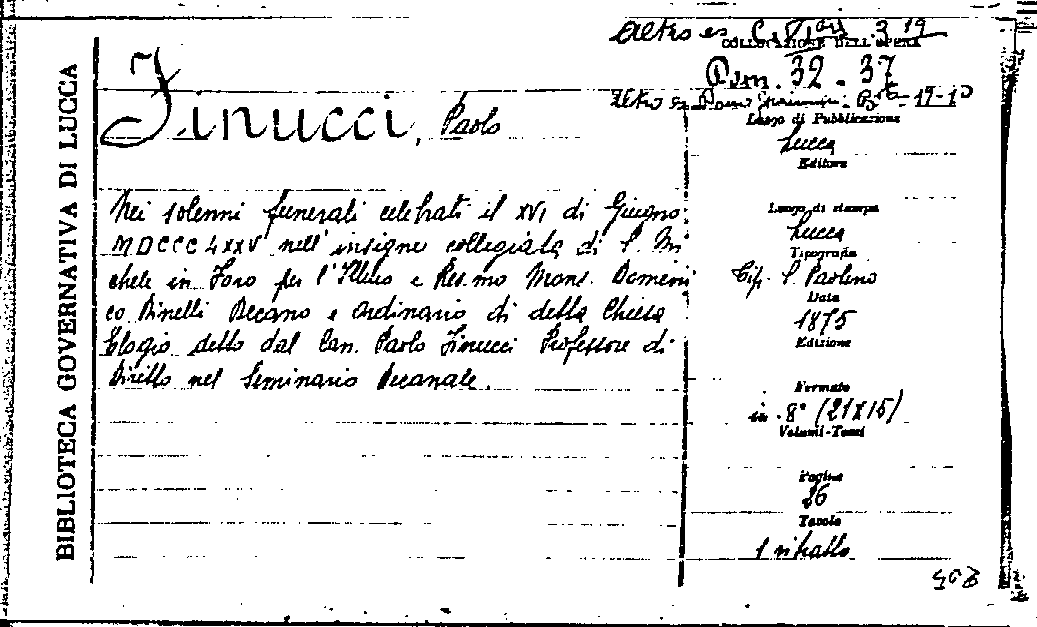 BIBLIOTECA GOVERNATIVA DI LUCCA
Altro es
COLLOCAZIONE DELL'OPERA
Dom. 32 - 37
Altro es Bta - 19-10
Finucci, Paolo
Nei solenni funerali celebrati il XVI di Giugno
MDCCCLXXV nell'insigne collegiata di S. Mi
chele in Foro per l'Illmo e Rev.mo Mons. Domeni
co Dinelli Decano e Ordinario di detta Chiesa
Elogio detto dal Can. Paolo Finucci Professore di
Diritto nel Seminario Decanale.
Luogo di Pubblicazione
Lucca
Editore
Luogo di stampa
Lucca
Tipografia
Tip. S. Paolino
Data
1875
Edizione
Formato
in 8° (21X15)
Volumi-Tomi
Pagine
26
Tavole
1 ritratto